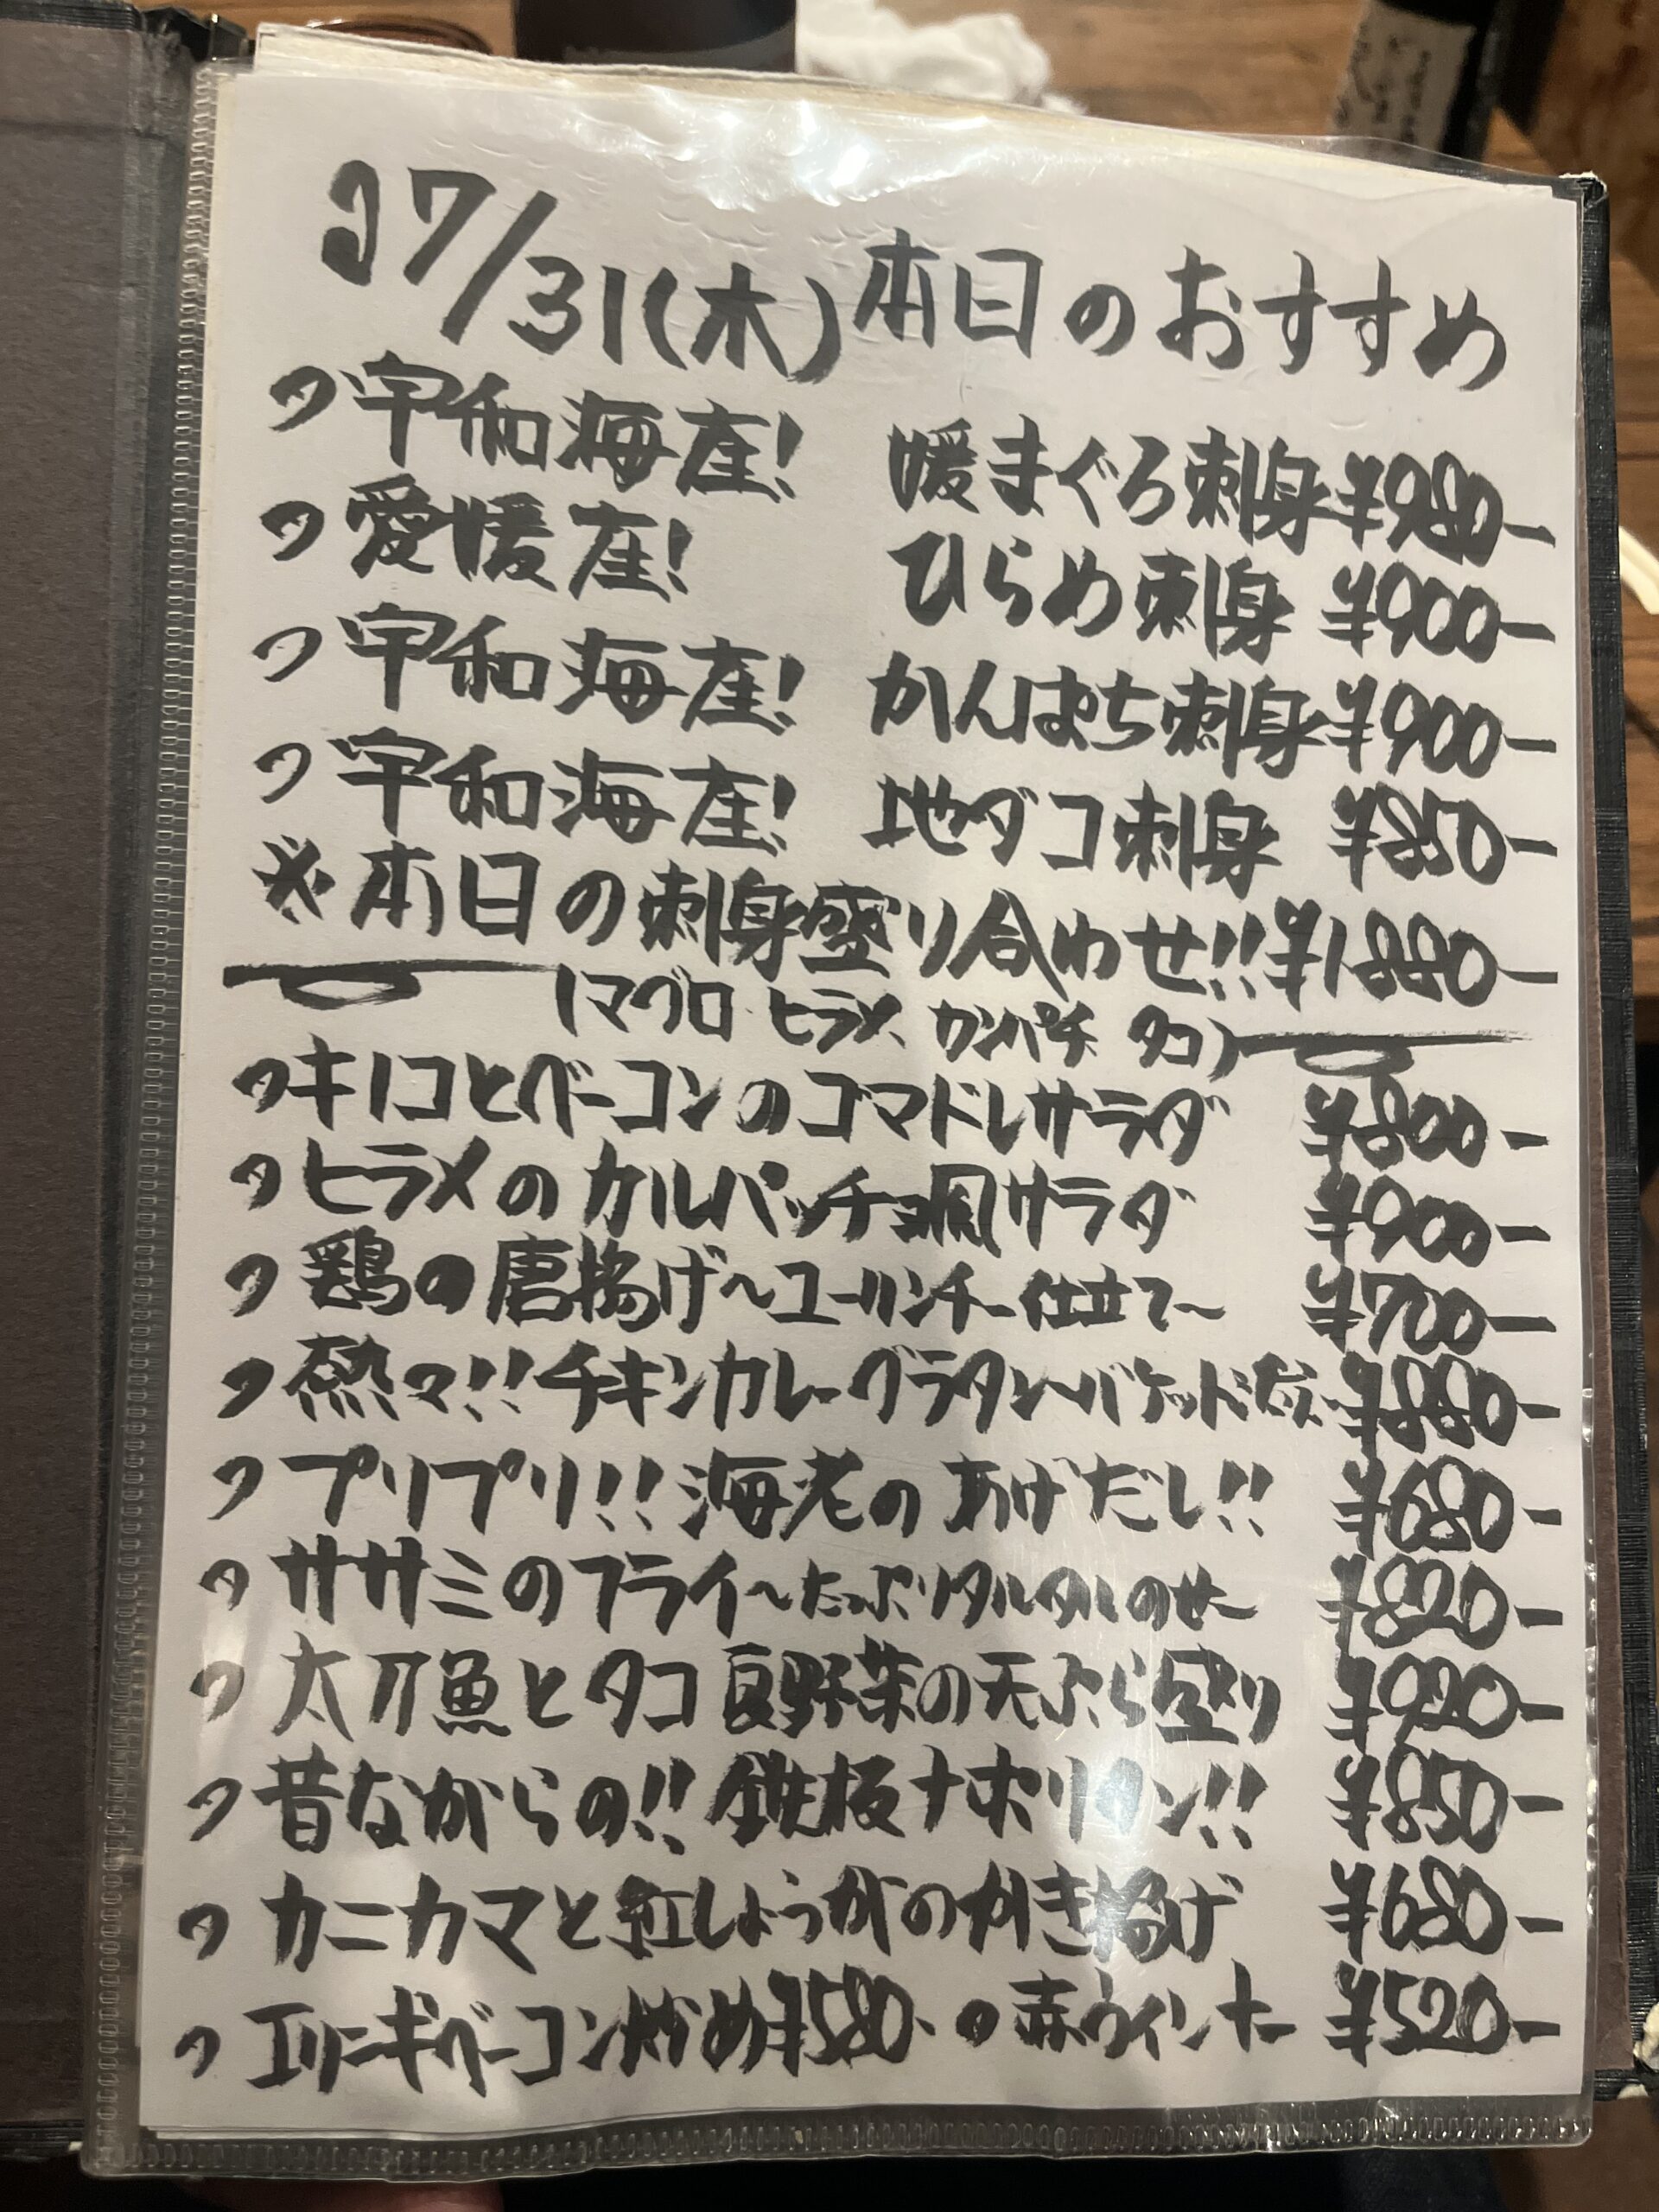 7/31(木)本日のおすすめ
宇和海産! 媛まぐろ刺身 ¥980-
愛媛産! ひらめ刺身 ¥900-
宇和海産! かんぱち刺身 ¥900-
宇和海産! 地ダコ刺身 ¥850-
※本日の刺身盛り合わせ!! ¥1880-
(マグロ ヒラメ カンパチ タコ)
キノコとベーコンのゴマドレサラダ ¥800-
ヒラメのカルパッチョ風サラダ ¥900-
鶏の唐揚げ~ユーリンチー仕立て~ ¥700-
熱々!!チキンカレーグラタン~バケット付~ ¥880-
プリプリ!!海老のあげだし!! ¥680-
ササミのフライ~たっぷりタルタルのせ~ ¥820-
太刀魚とタコ 夏野菜の天ぷら盛り ¥920-
昔ながらの!!鉄板ナポリタン!! ¥850-
カニカマと紅しょうがのかき揚げ ¥680-
エリンギベーコン炒め¥580- 赤ウィンナー ¥520-